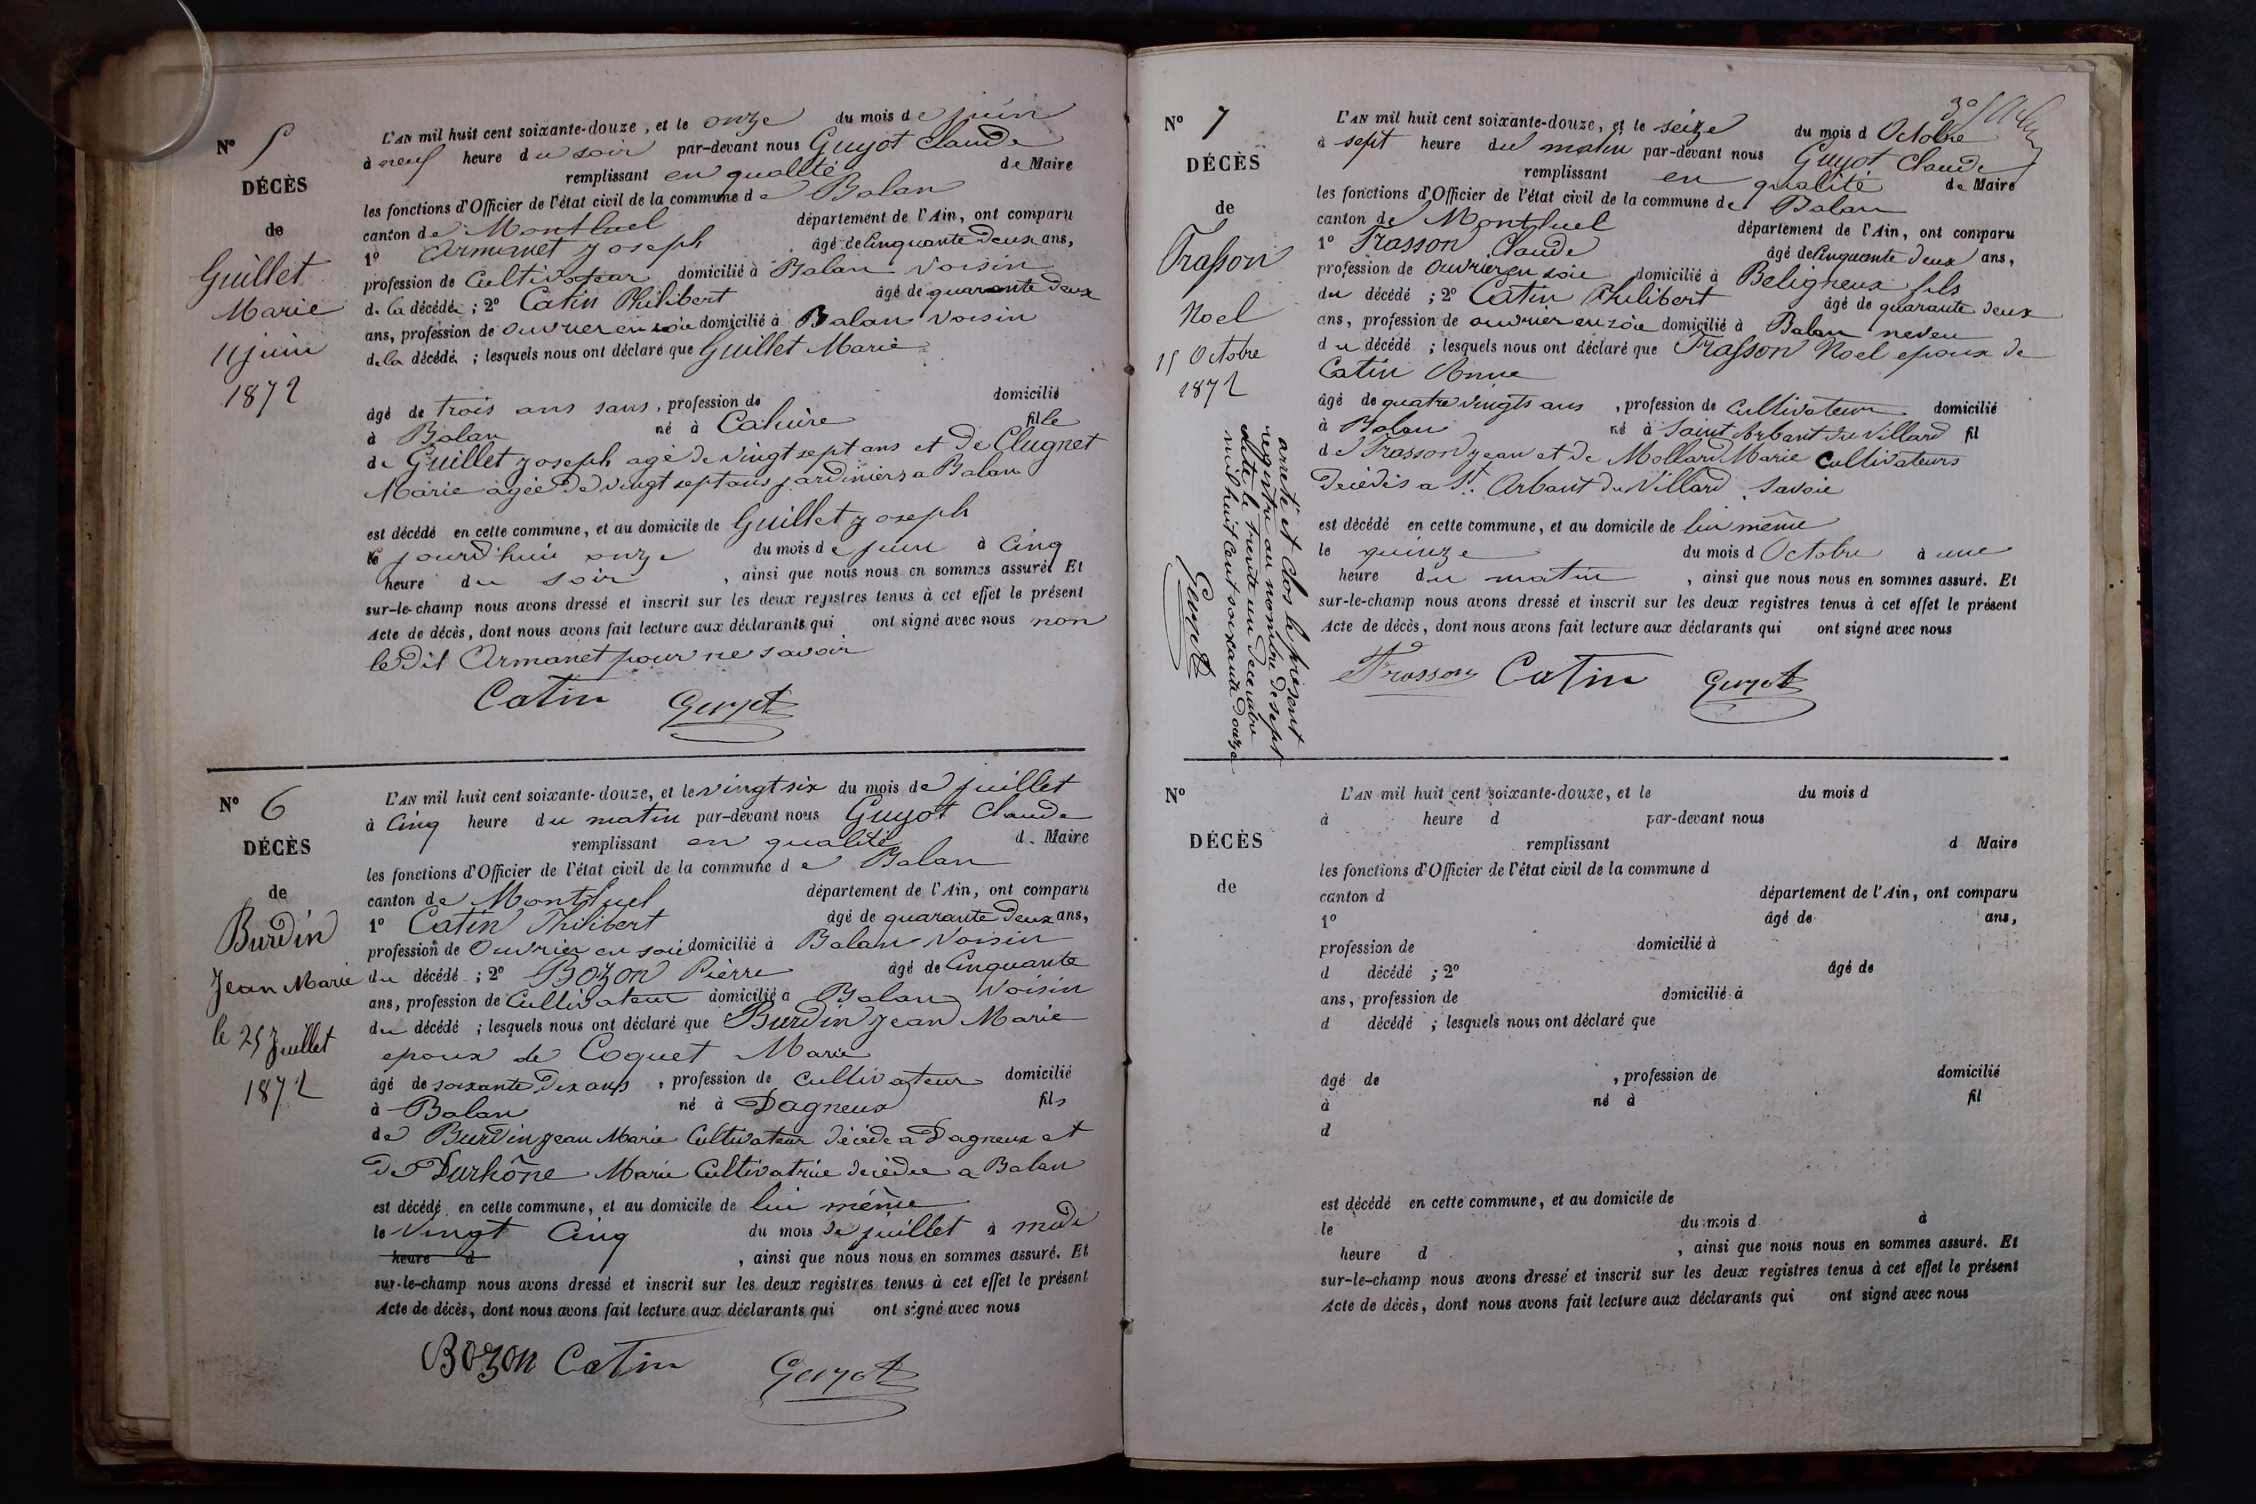 N° 5
DÉCÈS
de
Guillet
Marie
11 juin
1872
L'AN mil huit cent soixante-douze, et le onze du mois de juin
à neuf heure du soir par-devant nous Guyot Claude
remplissant en qualité de Maire
les fonctions d'Officier de l'état civil de la commune de Balan
canton de Montluel département de l'Ain, ont comparu
1° Armanet Joseph âgé de Cinquante Deux ans,
profession de Cultivateur domicilié à Balan voisin
de la décédée ; 2° Catin Philibert âgé de quarante Deux
ans, profession de ouvrier en soie domicilié à Balan voisin
de la décédé ; lesquels nous ont déclaré que Guillet Marie
âgé de trois ans sans, profession de domicilié
à Balan né à Caluire fille
de Guillet Joseph agé de vingt sept ans et de Clugnet
Marie agée de vingt sept ans jardiniers a Balan
est décédé en cette commune, et au domicile de Guillet Joseph
le jourd'hui onze du mois de juin à Cinq
heure du soir, ainsi que nous nous en sommes assuré. Et
sur-le-champ nous avons dressé et inscrit sur les deux registres tenus à cet effet le présent
Acte de décès, dont nous avons fait lecture aux déclarants qui ont signé avec nous non
le dit Armanet pour ne savoir
Catin Guyot
N° 6
DÉCÈS
de
Burdin
Jean Marie
le 25 Juillet
1872
L'AN mil huit cent soixante-douze, et le vingt six du mois de juillet
à Cinq heure du matin par-devant nous Guyot Claude
remplissant en qualité d. Maire
les fonctions d'Officier de l'état civil de la commune de Balan
canton de Montluel département de l'Ain, ont comparu
1° Catin Philibert âgé de quarante Deux ans,
profession de Ouvrier en soie domicilié à Balan Voisin
du décédé ; 2° Bozon Pierre âgé de Cinquante
ans, profession de Cultivateur domicilié à Balan Voisin
du décédé ; lesquels nous ont déclaré que Burdin Jean Marie
epoux de Coquet Marie
âgé de soixante Dix ans, profession de Cultivateur domicilié
à Balan né à Dagneux fils
de Burdin Jean Marie Cultivateur décédé a Dagneux et
De Durhône Marie Cultivatrice decédée a Balan
est décédé en cette commune, et au domicile de lui même
le Vingt Cinq du mois de juillet à midi
heure d, ainsi que nous nous en sommes assuré. Et
sur-le-champ nous avons dressé et inscrit sur les deux registres tenus à cet effet le présent
Acte de décès, dont nous avons fait lecture aux déclarants qui ont signé avec nous
Bozon Catin Guyot
N° 7
DÉCÈS
de
Frasson
Noel
15 Octobre
1872
L'AN mil huit cent soixante-douze, et le seize du mois d Octobre
à sept heure du matin par-devant nous Guyot Claude
remplissant en qualité de Maire
les fonctions d'Officier de l'état civil de la commune de Balan
canton de Montluel département de l'Ain, ont comparu
1° Frasson Claude âgé de Cinquante Deux ans,
profession de Ouvrier en soie domicilié à Beligneux fils
du décédé ; 2° Catin Philibert âgé de quarante Deux
ans, profession de ouvrier en soie domicilié à Balan neveu
du décédé ; lesquels nous ont déclaré que Frasson Noel epoux de
Catin Anne
âgé de quatre vingts ans, profession de Cultivateur domicilié
à Balan né à Saint Arbant du Villard fil
de Frasson Jean et de Mollard Marie Cultivateurs
Décédés a St. Arbant du Villard Savoie
est décédé en cette commune, et au domicile de lui même
le quinze du mois d Octobre à une
heure du matin, ainsi que nous nous en sommes assuré. Et
sur-le-champ nous avons dressé et inscrit sur les deux registres tenus à cet effet le présent
Acte de décès, dont nous avons fait lecture aux déclarants qui ont signé avec nous
Frasson Catin Guyot
arrêté et clos le présent
registre au nombre de sept
le trente un Décembre
mil huit cent soixante douze
Guyot
N°
DÉCÈS
de
L'AN mil huit cent soixante-douze, et le du mois d
à heure d par-devant nous
remplissant d Maire
les fonctions d'Officier de l'état civil de la commune d
canton d département de l'Ain, ont comparu
1° âgé de ans,
profession de domicilié à
d décédé ; 2° âgé de
ans, profession de domicilié à
d décédé ; lesquels nous ont déclaré que
âgé de , profession de domicilié
à né à fil
d
est décédé en cette commune, et au domicile de
le du mois d à
heure d , ainsi que nous nous en sommes assuré. Et
sur-le-champ nous avons dressé et inscrit sur les deux registres tenus à cet effet le présent
Acte de décès, dont nous avons fait lecture aux déclarants qui ont signé avec nous